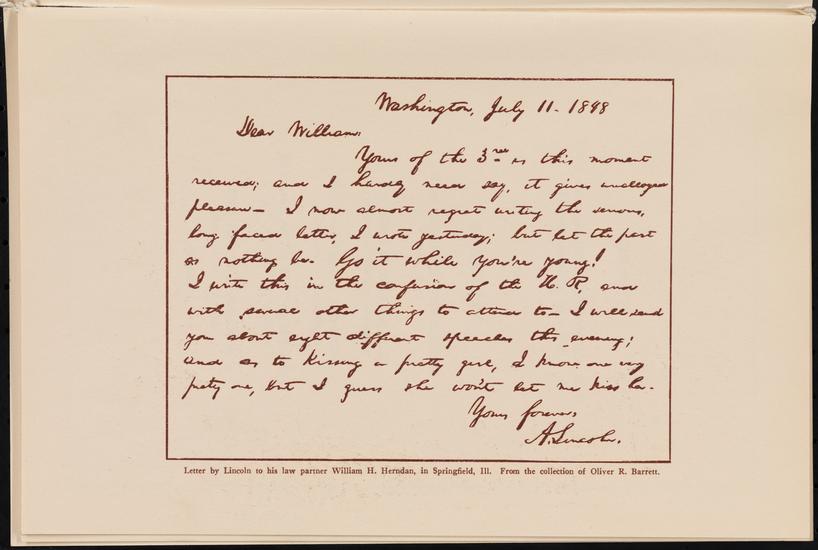 Washington, July 11- 1848
Dear William:
Yours of the 3rd is this moment
received; and I hardly need say, it gives unalloyed
pleasure- I now almost regret writing the serious,
long faced letter, I wrote yesterday; but let the past
as nothing be- Go it while you're young!
I write this in the confusion of the H. R, and
with several other things to attend to- I will send
you about eight different speeches this evening;
and as to kissing a pretty girl, I know one very
pretty one, but I guess she won't let me kiss her-
Yours forever,
A. Lincoln.
Letter by Lincoln to his law partner William H. Herndan, in Springfield, Ill. From the collection of Oliver R. Barrett.